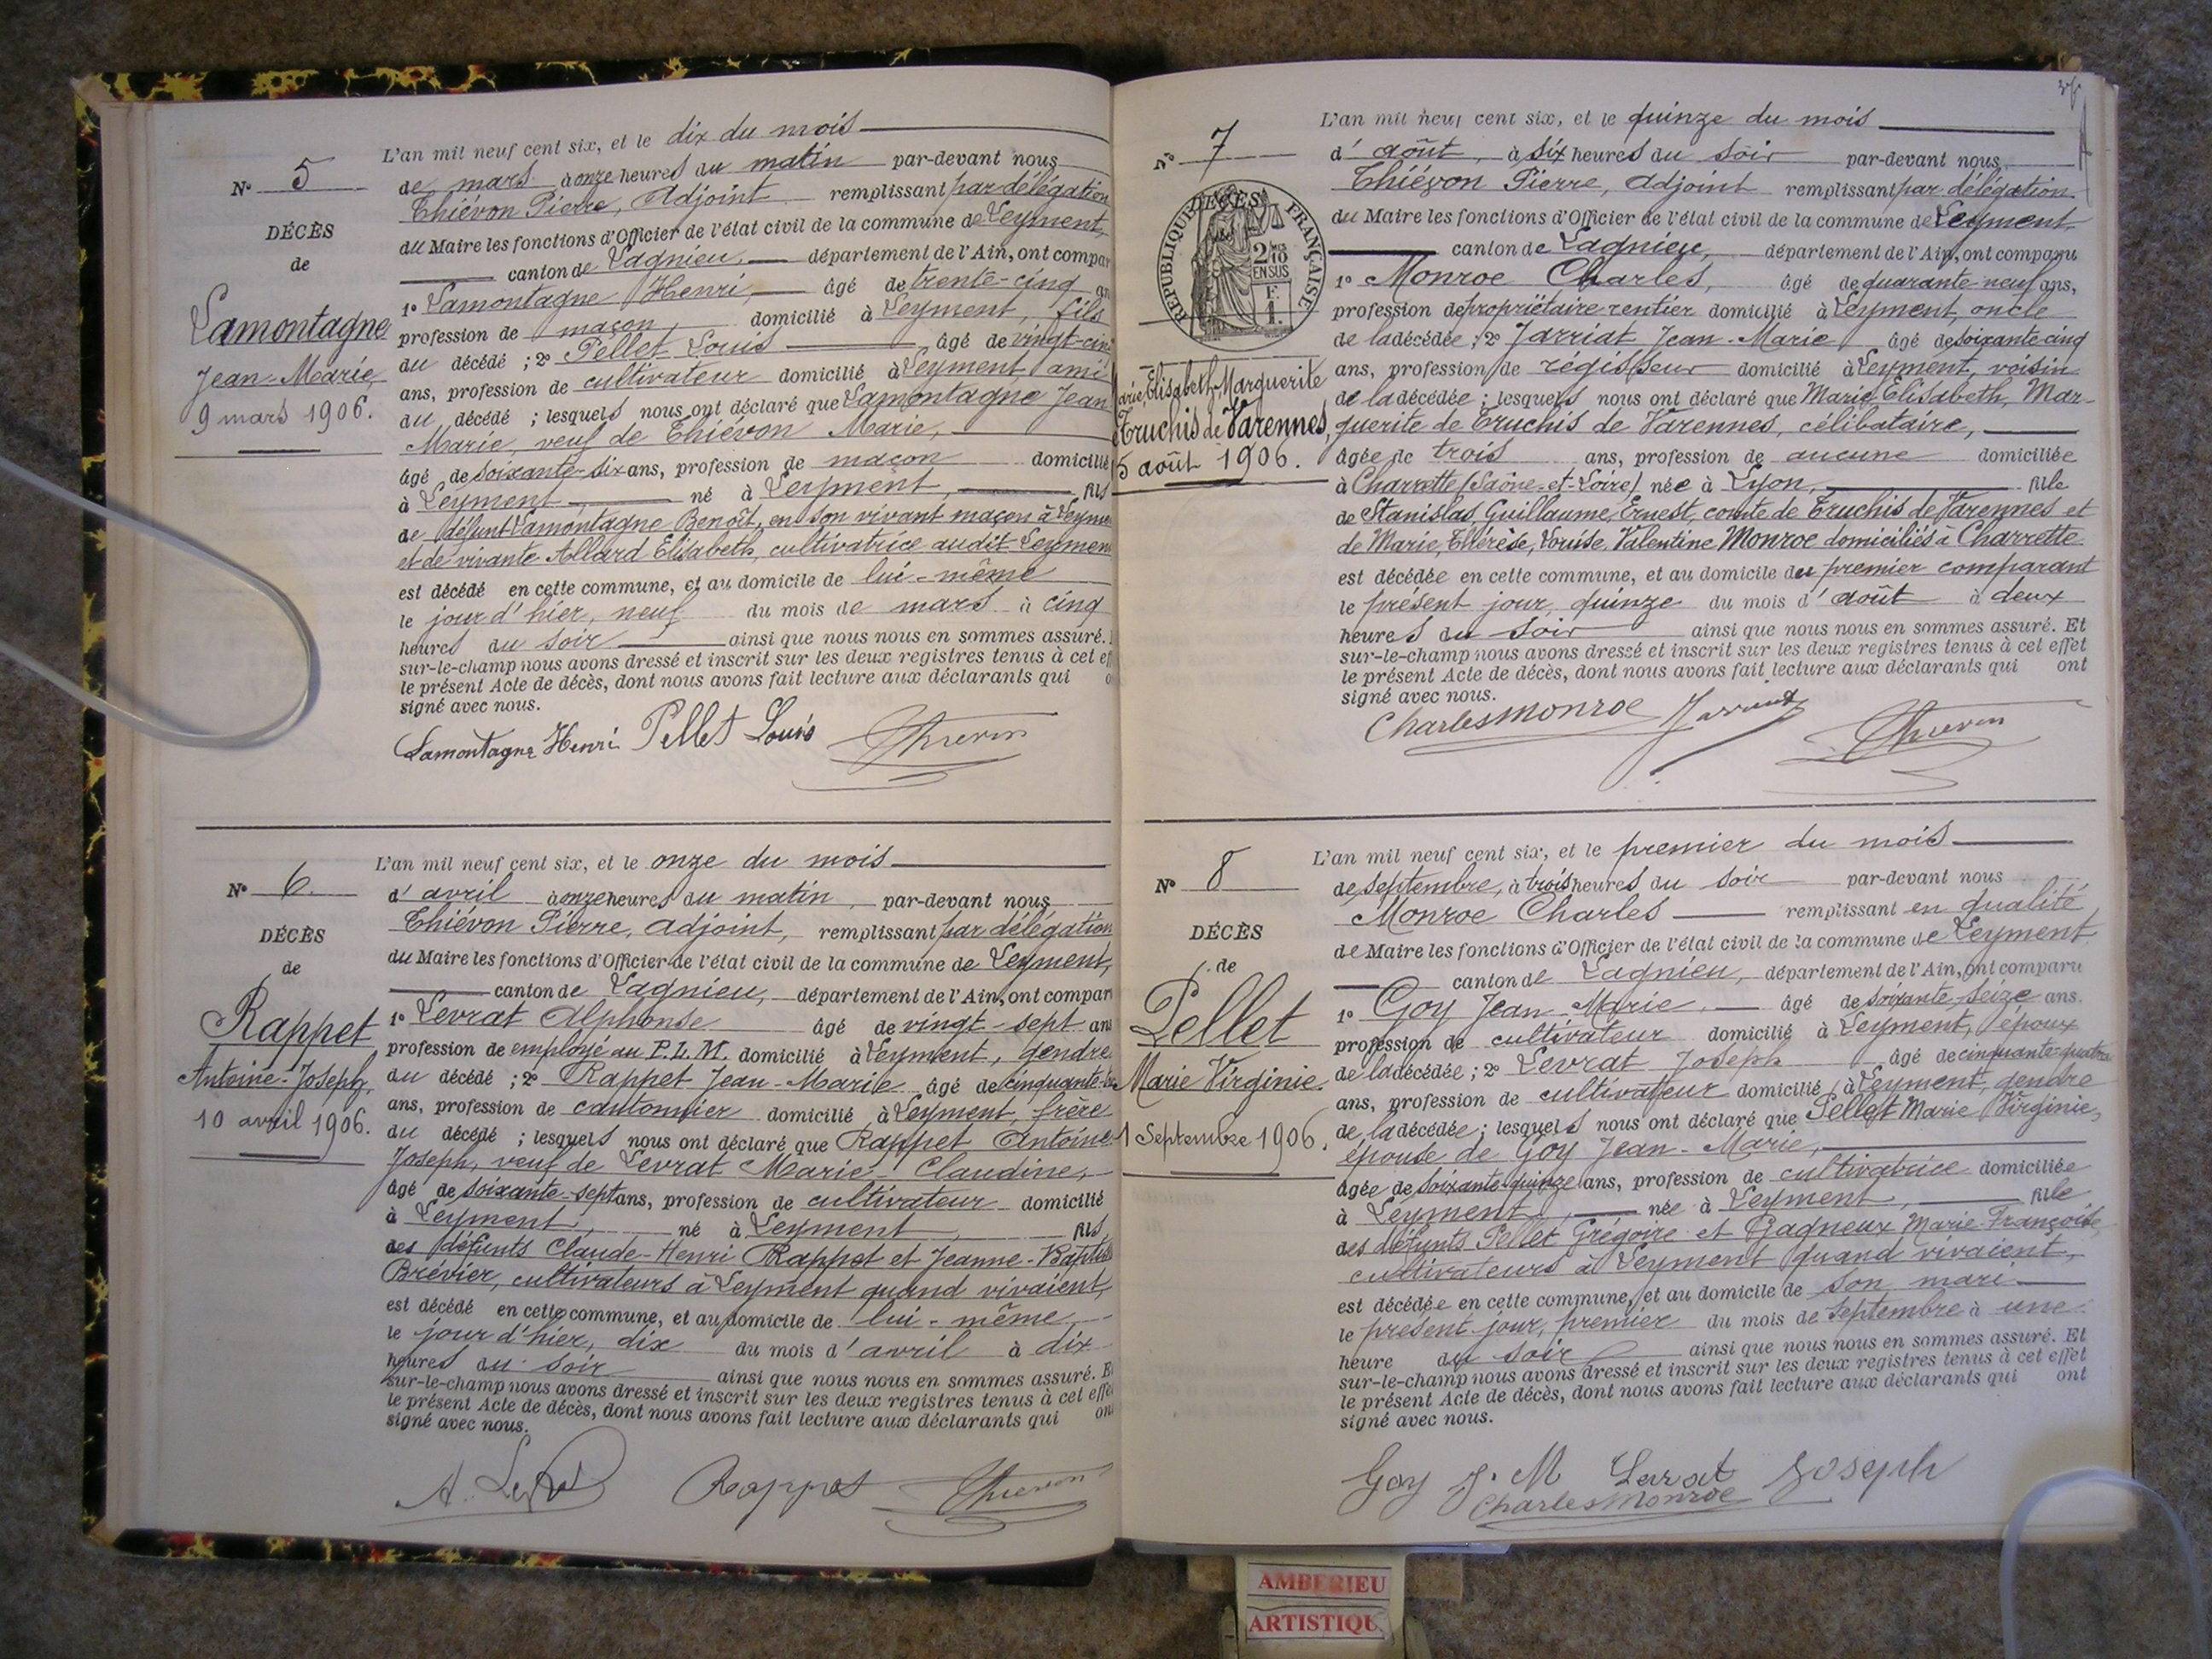 N° 5
DÉCÈS
de
Lamontagne
Jean-Marie,
9 mars 1906.
L'an mil neuf cent six, et le dix du mois
de mars à onze heures du matin par-devant nous
Thiévon Pierre, Adjoint remplissant par délégation
du Maire les fonctions d'Officier de l'état civil de la commune de Leyment,
canton de Lagnieu, département de l'Ain, ont compar
1° Lamontagne Henri, âgé de trente-cinq an
profession de maçon, domicilié à Leyment, fils
du décédé ; 2° Pellet Louis âgé de vingt-cin
ans, profession de cultivateur domicilié à Leyment, ami
du décédé ; lesquels nous ont déclaré que Lamontagne Jean
Marie, veuf de Thiévon Marie,
âgé de soixante-six ans, profession de maçon domicilié
à Leyment né à Leyment, fils
de défunt Lamontagne Benoît, en son vivant maçon à Leyme
et de vivante Allard Elisabeth, cultivatrice audit Leymen
est décédé en cette commune, et au domicile de lui-même
le jour d'hier, neuf du mois de mars à cinq
heures du soir ainsi que nous nous en sommes assuré.
sur-le-champ nous avons dressé et inscrit sur les deux registres tenus à cet ef
le présent Acte de décès, dont nous avons fait lecture aux déclarants qui o
signé avec nous.
Lamontagne Henri Pellet Louis Thievon
N° 6.
DÉCÈS
de
Rappet
Antoine-Joseph,
10 avril 1906.
L'an mil neuf cent six, et le onze du mois
d'avril à onze heures du matin, par-devant nous
Thiévon Pierre, adjoint, remplissant par délégation
du Maire les fonctions d'Officier de l'état civil de la commune de Leyment,
canton de Lagnieu, département de l'Ain, ont compar
1° Levrat Alphonse âgé de vingt-sept ans
profession de employé au P.L.M. domicilié à Leyment, gendre
du décédé ; 2° Rappet Jean-Marie âgé de cinquante-
ans, profession de cantonnier domicilié à Leyment, frère
du décédé ; lesquels nous ont déclaré que Rappet Antoine
Joseph, veuf de Levrat Marie-Claudine,
âgé de soixante-sept ans, profession de cultivateur domicilié
à Leyment, né à Leyment fils
des défunts Claude-Henri Rappet et Jeanne-Baptis
Brévier, cultivateurs à Leyment quand vivaient,
est décédé en cette commune, et au domicile de lui-même,
le jour d'hier, dix du mois d'avril à dix
heures du soir ainsi que nous nous en sommes assuré. E
sur-le-champ nous avons dressé et inscrit sur les deux registres tenus à cet effe
le présent Acte de décès, dont nous avons fait lecture aux déclarants qui on
signé avec nous.
A. Levrat Rappet Thievon
N° 7
RÉPUBLIQUE FRANÇAISE
DÉCÈS
2/10
EN SUS
F.
1.
arie, Elisabeth, Marguerite
Truchis de Varennes,
5 août 1906.
L'an mil neuf cent six, et le quinze du mois
d'août, à six heures du soir par-devant nous
Thiévon Pierre, adjoint remplissant par délégation
du Maire les fonctions d'Officier de l'état civil de la commune de Leyment,
canton de Lagnieu, département de l'Ain, ont comparu
1° Monroe Charles, âgé de quarante-neuf ans,
profession de propriétaire-rentier domicilié à Leyment, oncle
de la décédée ; 2° Jarriat Jean-Marie âgé de soixante-cinq
ans, profession de régisseur domicilié à Leyment, voisin
de la décédée ; lesquels nous ont déclaré que Marie, Elisabeth, Mar-
guerite de Truchis de Varennes, célibataire,
âgée de trois ans, profession de aucune domiciliée
à Charrette (Saône-et-Loire) née à Lyon, fille
de Stanislas, Guillaume, Ernest, comte de Truchis de Varennes et
de Marie, Thérèse, Louise, Valentine Monroe domiciliés à Charrette
est décédée en cette commune, et au domicile du premier comparant
le présent jour, quinze du mois d'août à deux
heures du soir ainsi que nous nous en sommes assuré. Et
sur-le-champ nous avons dressé et inscrit sur les deux registres tenus à cet effet
le présent Acte de décès, dont nous avons fait lecture aux déclarants qui ont
signé avec nous.
Charles Monroe Jarriat Thievon
N° 8
DÉCÈS
de
Pellet
Marie Virginie.
1 Septembre 1906.
L'an mil neuf cent six, et le premier du mois
de septembre, à trois heures du soir par-devant nous
Monroe Charles remplissant en qualité
de Maire les fonctions d'Officier de l'état civil de la commune de Leyment
canton de Lagnieu, département de l'Ain, ont comparu
1° Goy Jean-Marie, âgé de soixante-seize ans.
profession de cultivateur domicilié à Leyment, époux
de la décédée ; 2° Levrat Joseph âgé de cinquante-quatre
ans, profession de cultivateur domicilié à Leyment, gendre
de la décédée ; lesquels nous ont déclaré que Pellet Marie Virginie,
épouse de Goy Jean-Marie,
âgée de soixante-quinze ans, profession de cultivatrice domiciliée
à Leyment, née à Leyment, fille
des défunts Pellet Grégoire et Gagneux Marie-Françoise,
cultivateurs à Leyment quand vivaient,
est décédée en cette commune, et au domicile de son mari
le présent jour, premier du mois de septembre à une
heure du soir ainsi que nous nous en sommes assuré. Et
sur-le-champ nous avons dressé et inscrit sur les deux registres tenus à cet effet
le présent Acte de décès, dont nous avons fait lecture aux déclarants qui ont
signé avec nous.
Goy J. M Levrat Joseph
Charles Monroe
AMBERIEU
ARTISTIQU